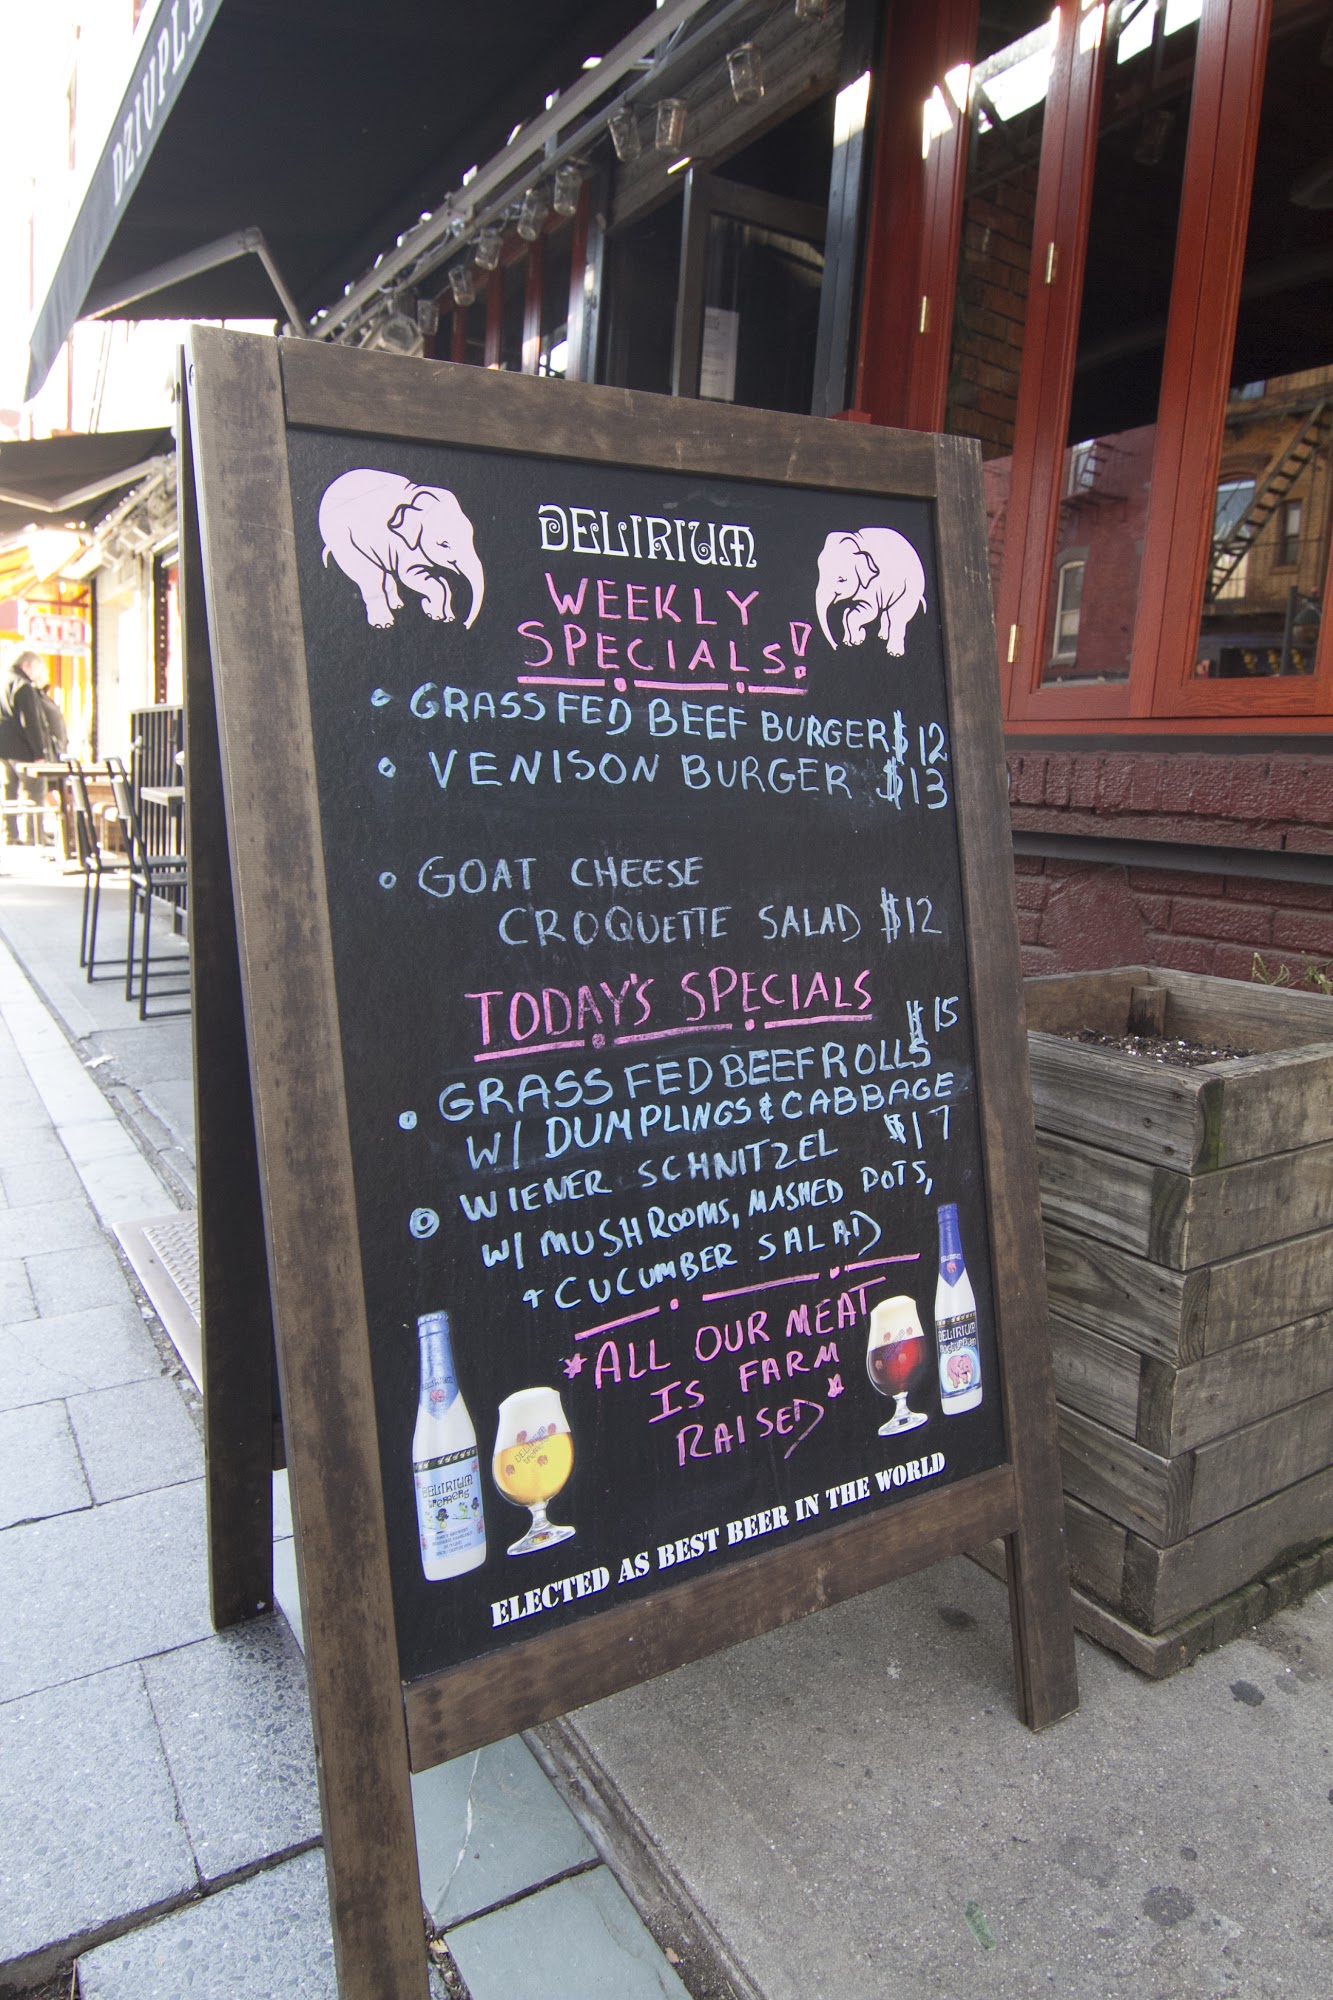 DZIUPLA
DELIRIUM
WEEKLY
SPECIALS!
GRASS FED BEEF BURGER $12
VENISON BURGER $13
GOAT CHEESE
CROQUETTE SALAD $12
TODAY'S SPECIALS
$15
GRASS FED BEEF ROLLS
W/ DUMPLINGS & CABBAGE
WIENER SCHNITZEL $17
W/ MUSHROOMS, MASHED POTS,
+ CUCUMBER SALAD
*ALL OUR MEAT
IS FARM
RAISED*
DELIRIUM
tremens
DELIRIUM
DELIRIUM
ELECTED AS BEST BEER IN THE WORLD